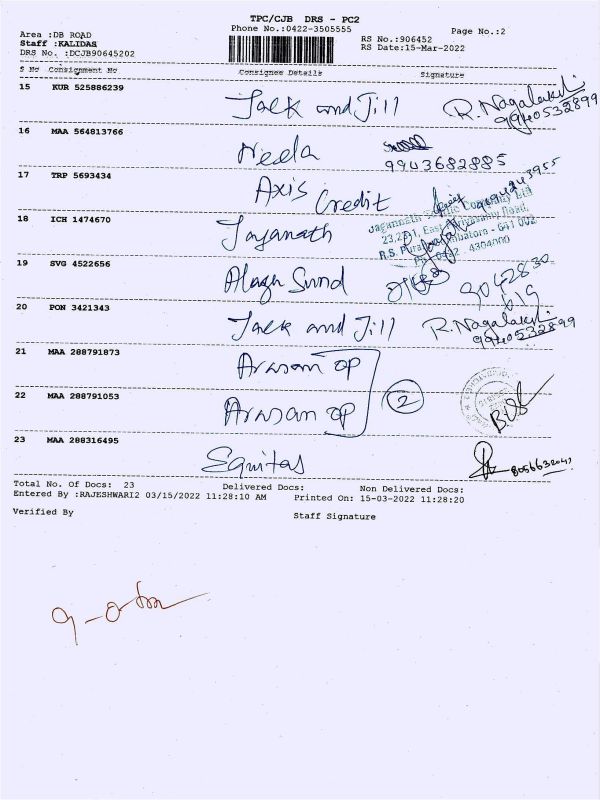 TPC/CJB DRS - PC2
Phone No.:0422-3505555
Page No.:2
Area :DB ROAD
Staff :KALIDAS
DRS No. :DCJB90645202
RS No.:906452
RS Date:15-Mar-2022
S No Consignment No Consignee Details Signature
15 KUR 525886239 Jack and Jill R. Nagalakshi
9940532899
16 MAA 564813766 Neela
9943682885
17 TRP 5693434 Axis Credit
18 ICH 1474670 Jayanath
R.S. Puram, Coimbatore - 641 002
19 SVG 4522656 Alagu Sund
20 PON 3421343 Jack and Jill R. Nagalakshi
9940532899
21 MAA 288791873 Arasan op
22 MAA 288791053 Arasan op
2
23 MAA 288316495 Equitas
Total No. Of Docs: 23 Delivered Docs: Non Delivered Docs:
Entered By :RAJESHWARI2 03/15/2022 11:28:10 AM Printed On: 15-03-2022 11:28:20
Verified By Staff Signature